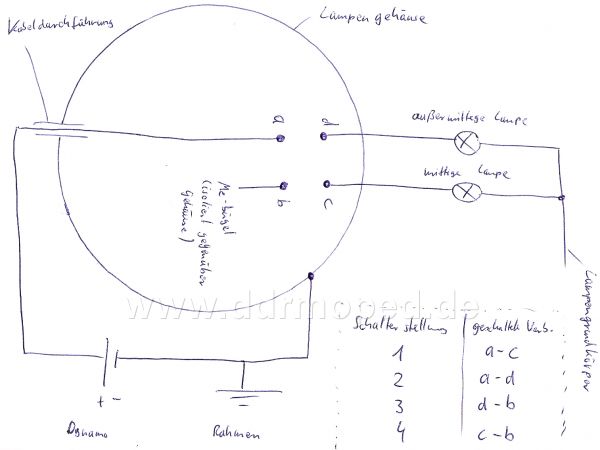 Kabeldurchführung
Lampengehäuse
a
d
außermittige Lampe
mittige Lampe
b
c
Me-Bügel
(isoliert gegenüber
Gehäuse)
Lampengrundkörper
www.ddrmoped.de
Schalterstellung | geschaltete Verb.
1 a-c
2 a-d
3 d-b
4 c-b
+ -
Dynamo
Rahmen